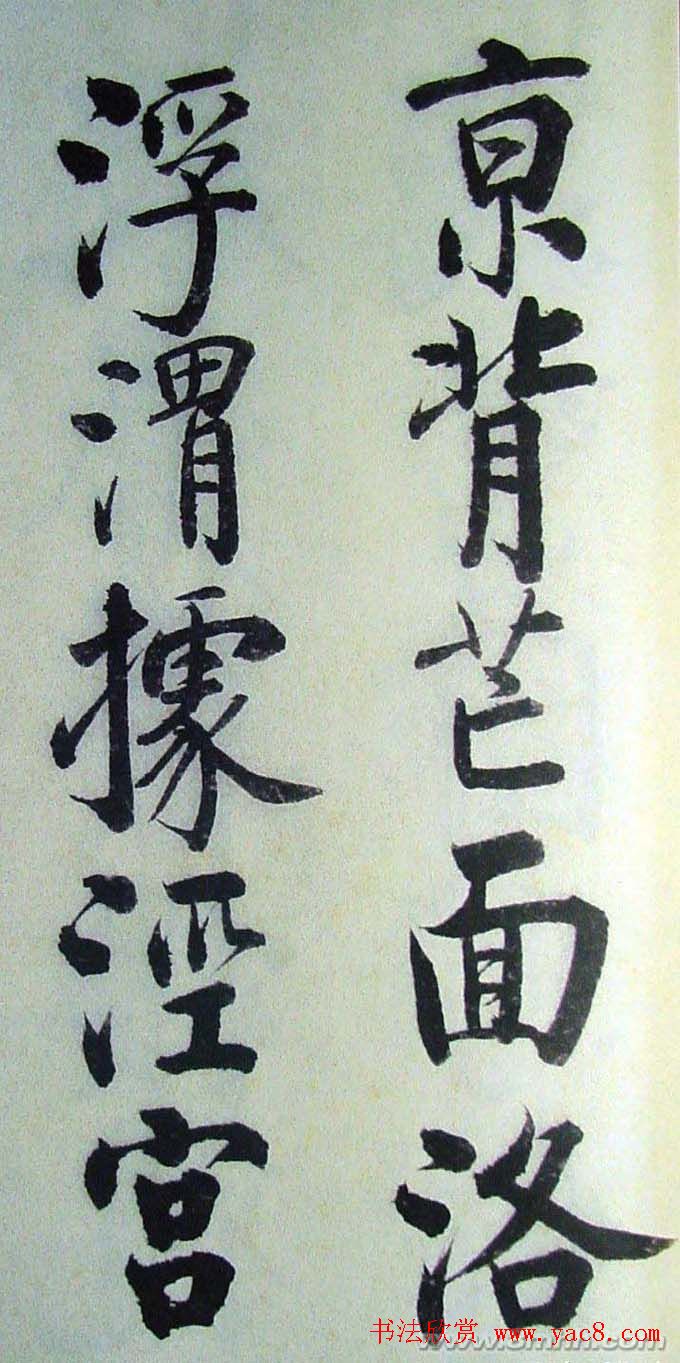 京背芒面洛
浮渭據涇宮
书法欣赏 www.yac8.com